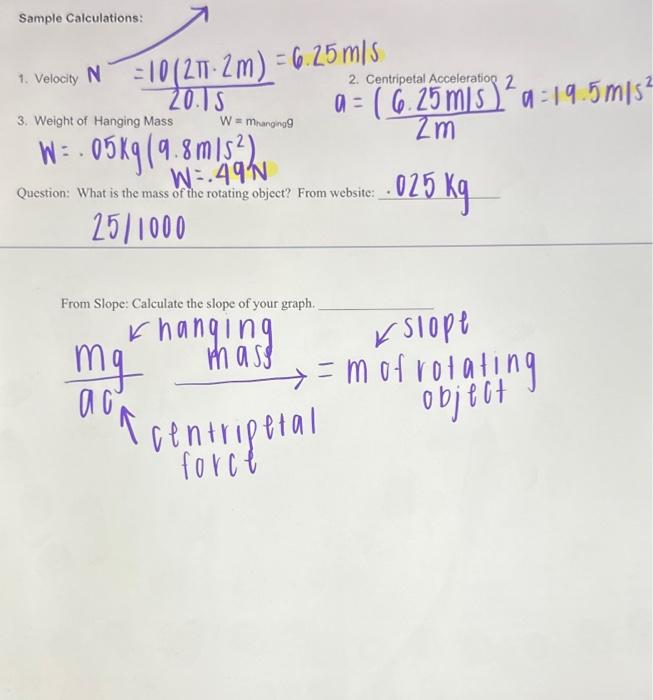 Sample Calculations:
1. Velocity N = 10(2π·2m) / 20.1s = 6.25m/s
2. Centripetal Acceleration
a = (6.25m/s)² / 2m a=19.5m/s²
3. Weight of Hanging Mass W = mhangingg
W = .05kg(9.8m/s²)
W=.49N
Question: What is the mass of the rotating object? From website: .025 kg
25/1000
From Slope: Calculate the slope of your graph.
hanging mass
slope
mg / ac = m of rotating object
centripetal force